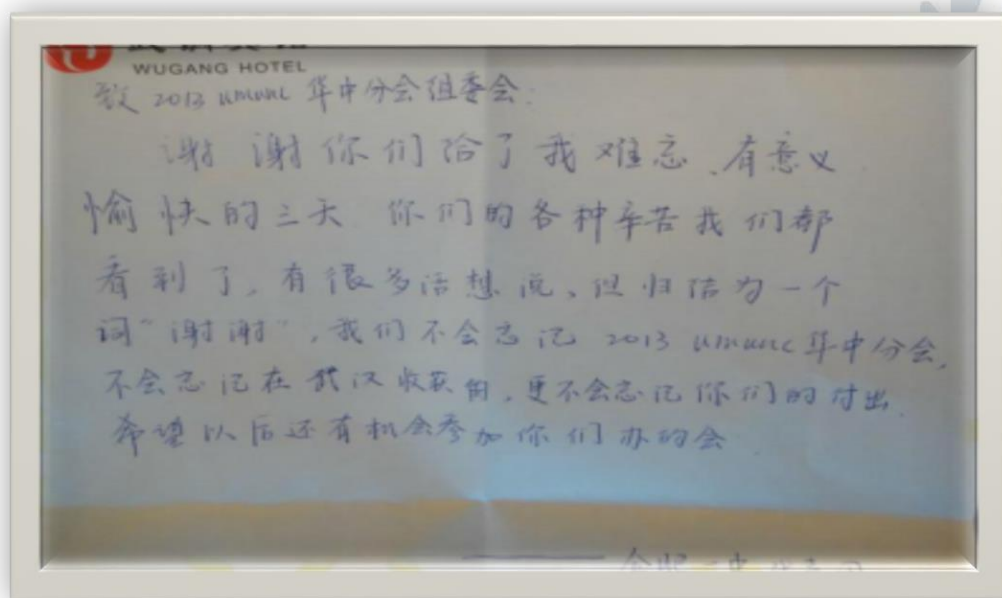 WUGANG HOTEL
致 2013 umunc 华中分会组委会:
谢谢你们给了我难忘、有意义
愉快的三天 你们的各种辛苦我们都
看到了, 有很多话想说、但归结为一个
词“谢谢”, 我们不会忘记 2013 umunc 华中分会,
不会忘记在武汉收获的, 更不会忘记你们的付出.
希望以后还有机会参加你们办的会